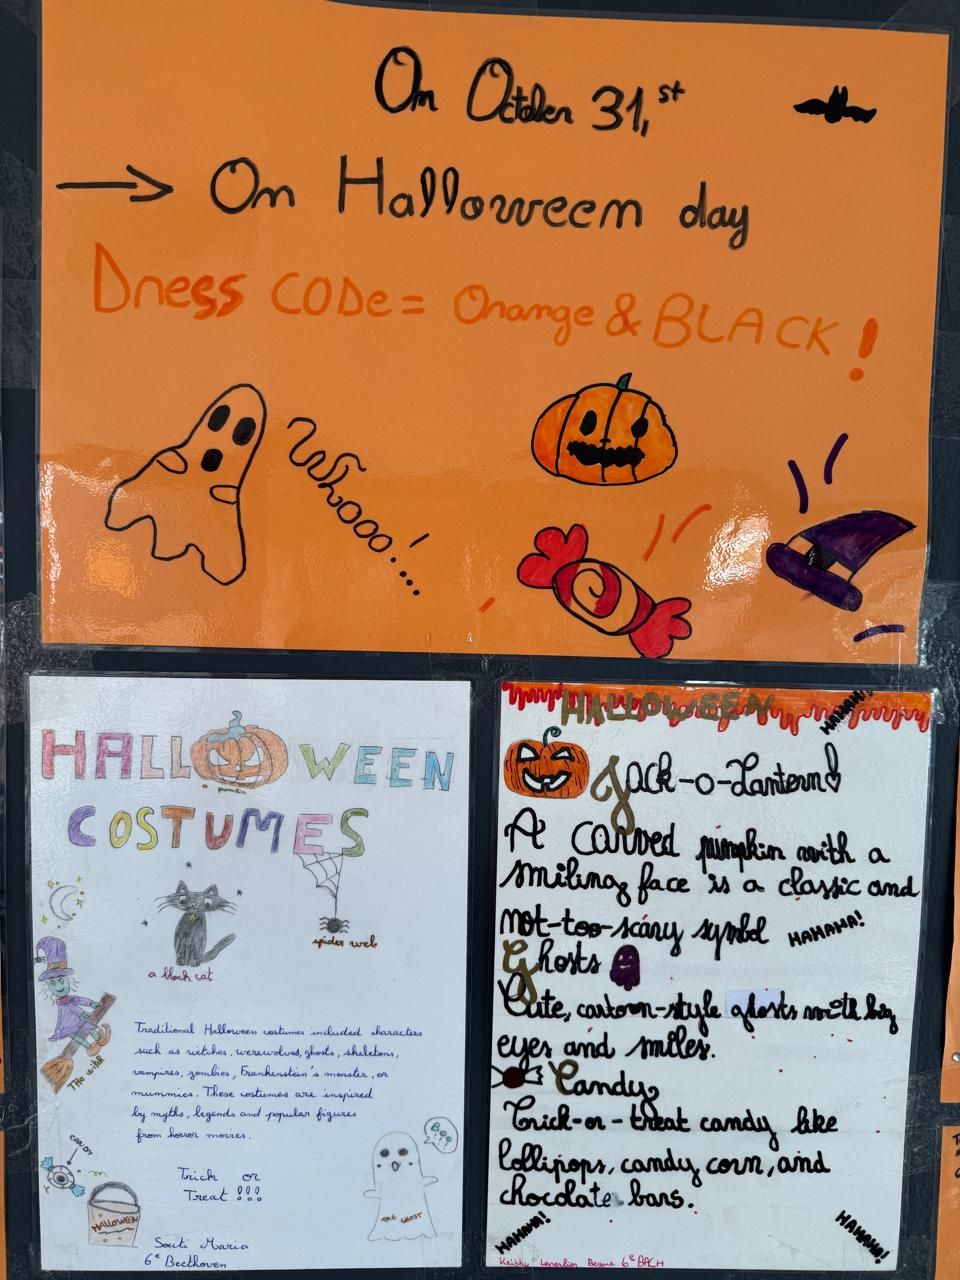 On October 31,st
On Halloween day
Dress CODe = Orange & BLACK !
Whooo!...
HALLOWEEN
a pumpkin
COSTUMES
spider web
a black cat
The witch
Traditional Halloween costumes included characters
such as witches, werewolves, ghosts, skeletons,
vampires, zombies, Frankenstein's monster, or
mummies. These costumes are inspired
by myths, legends and popular figures
from horror movies.
CANDY
Boo!!!
Trick or
Treat !!!
HALLOWEEN
THE GHOST
Souti Maria
6e Beethoven
HALLOWEEN
HAHAHA!
Jack-o-Lantern
A carved pumpkin with a
smiling face is a classic and
not-too-scary symbol
HAHAHA!
Ghosts
Cute, cartoon-style ghosts with big
eyes and smiles.
Candy
Trick-or-treat candy like
lollipops, candy corn, and
chocolate bars.
HAHAHA!
HAHAHA!
6e BACH